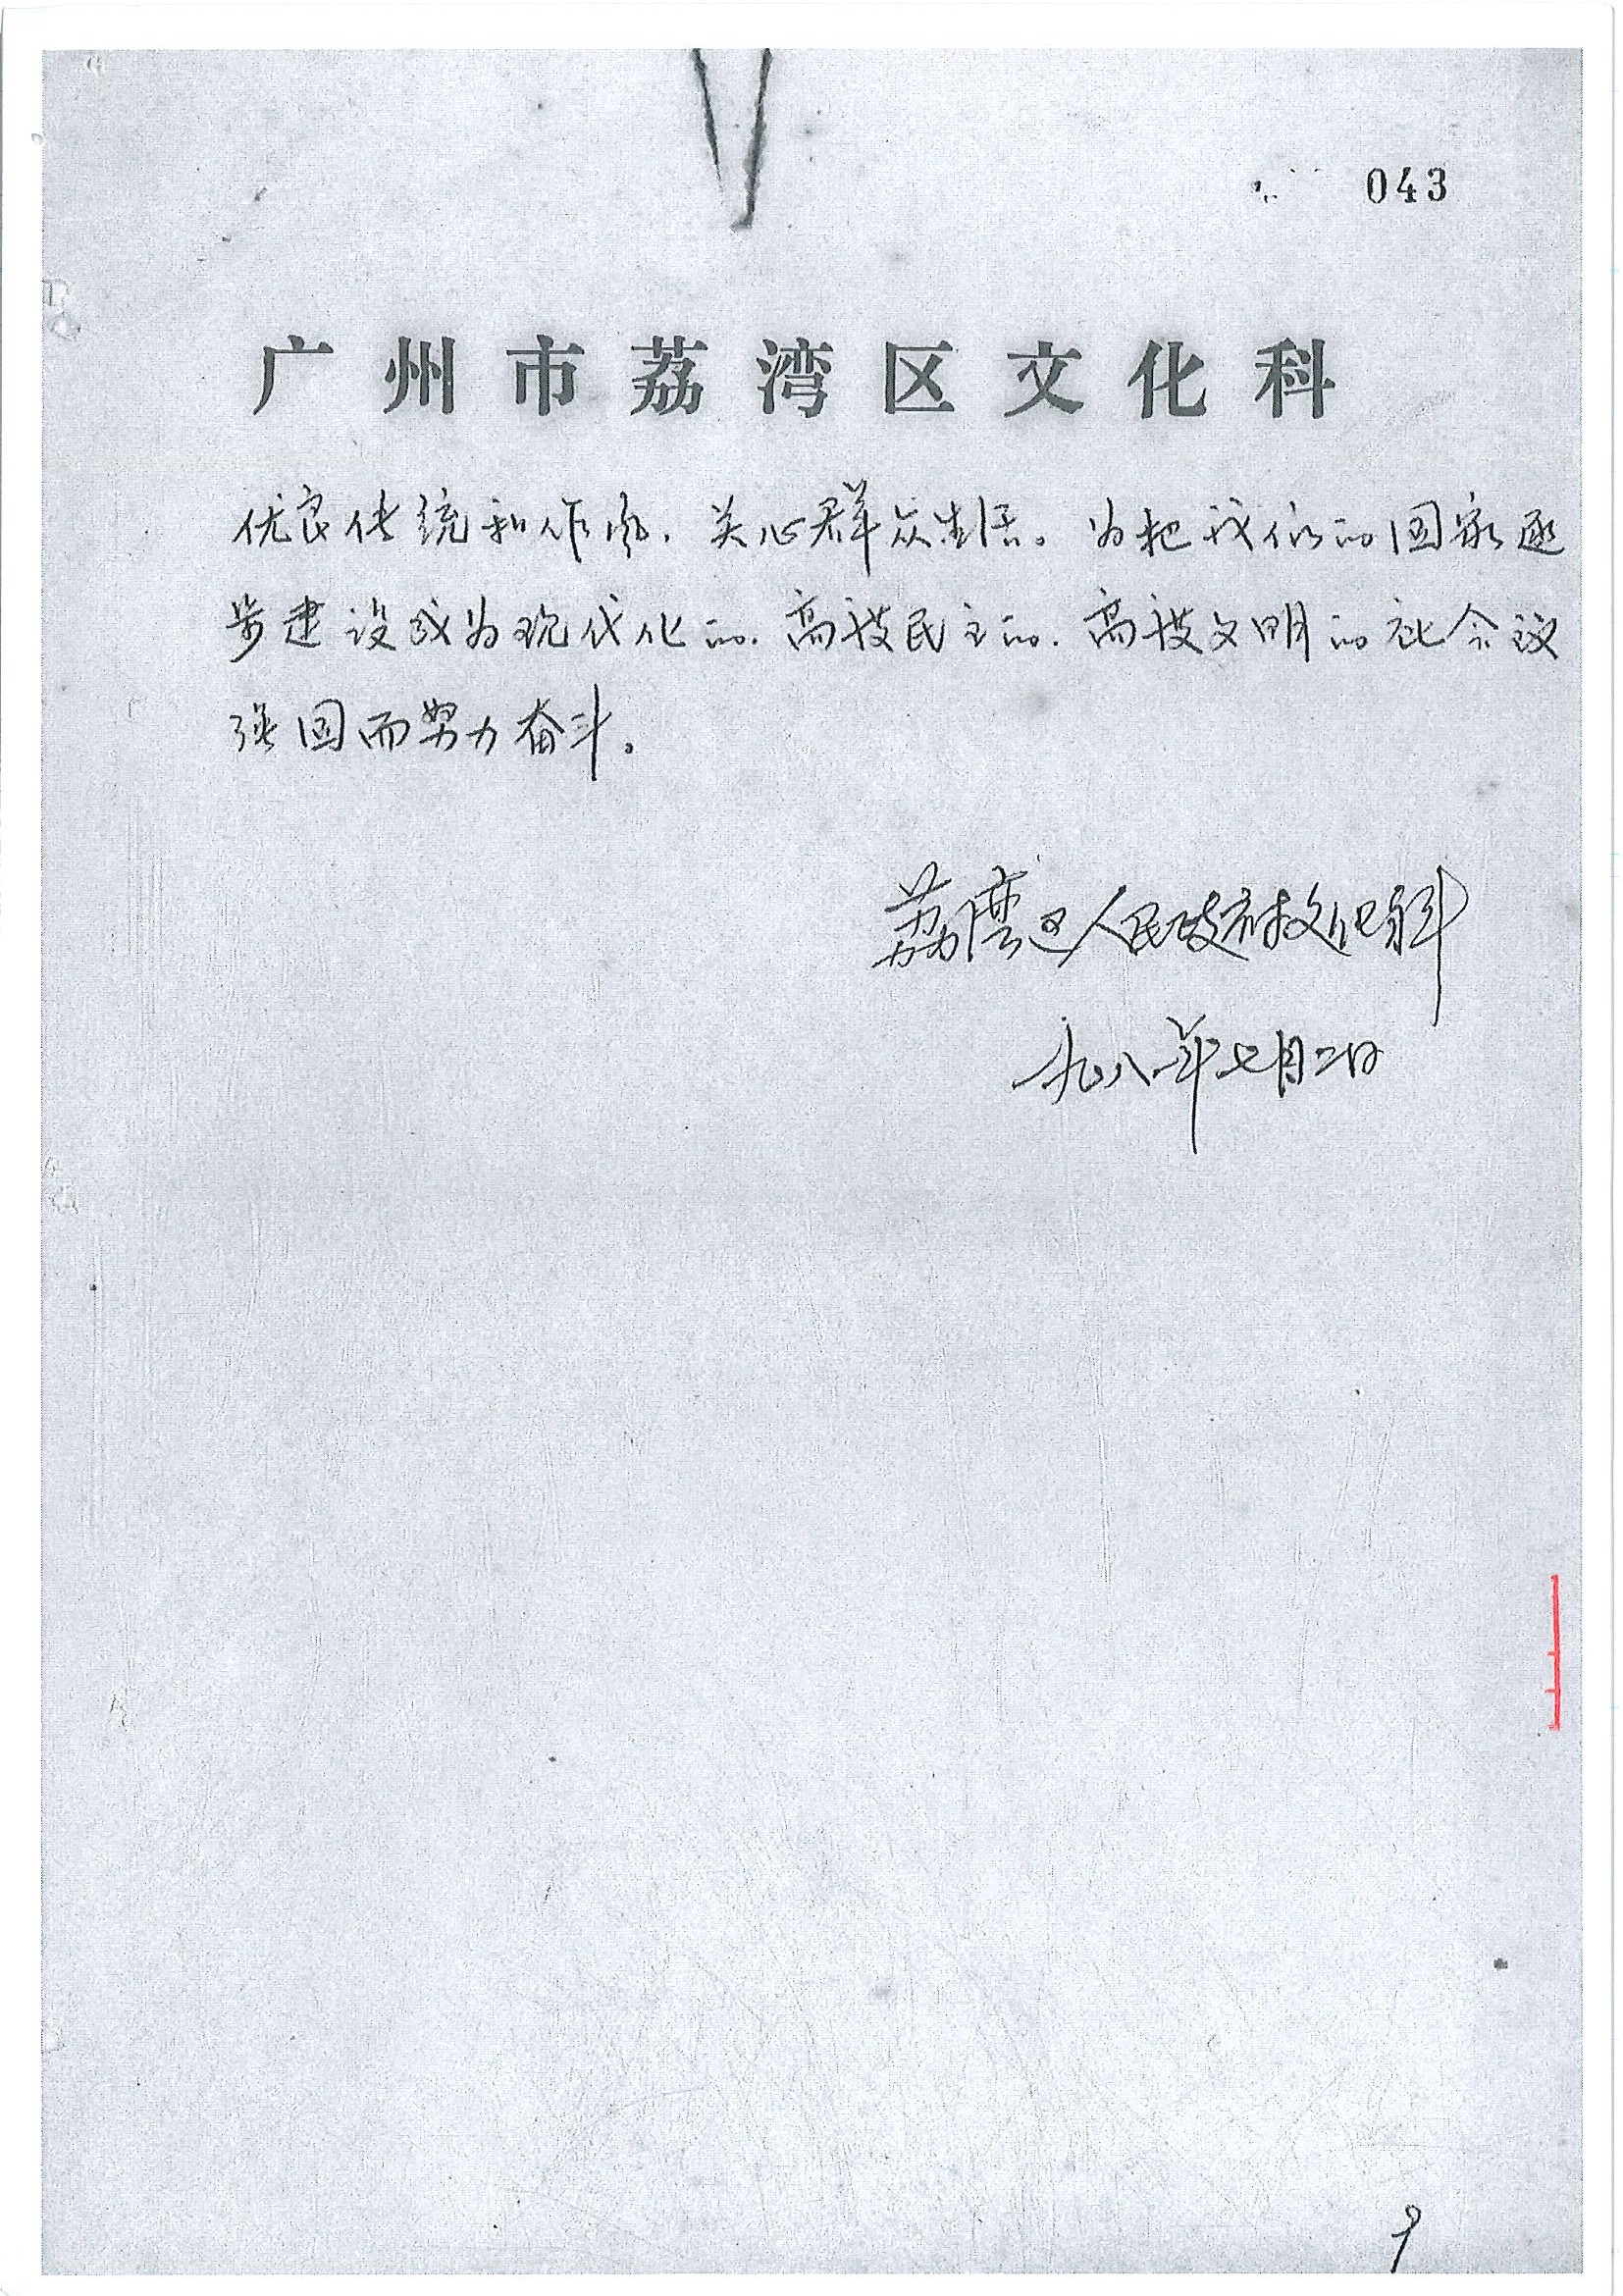 043
广州市荔湾区文化科
优良传统和作风，关心群众生活。为把我们的国家逐
步建设成为现代化的、高度民主的、高度文明的社会主义
强国而努力奋斗。
荔湾区人民政府文化科
一九八一年七月二日
9